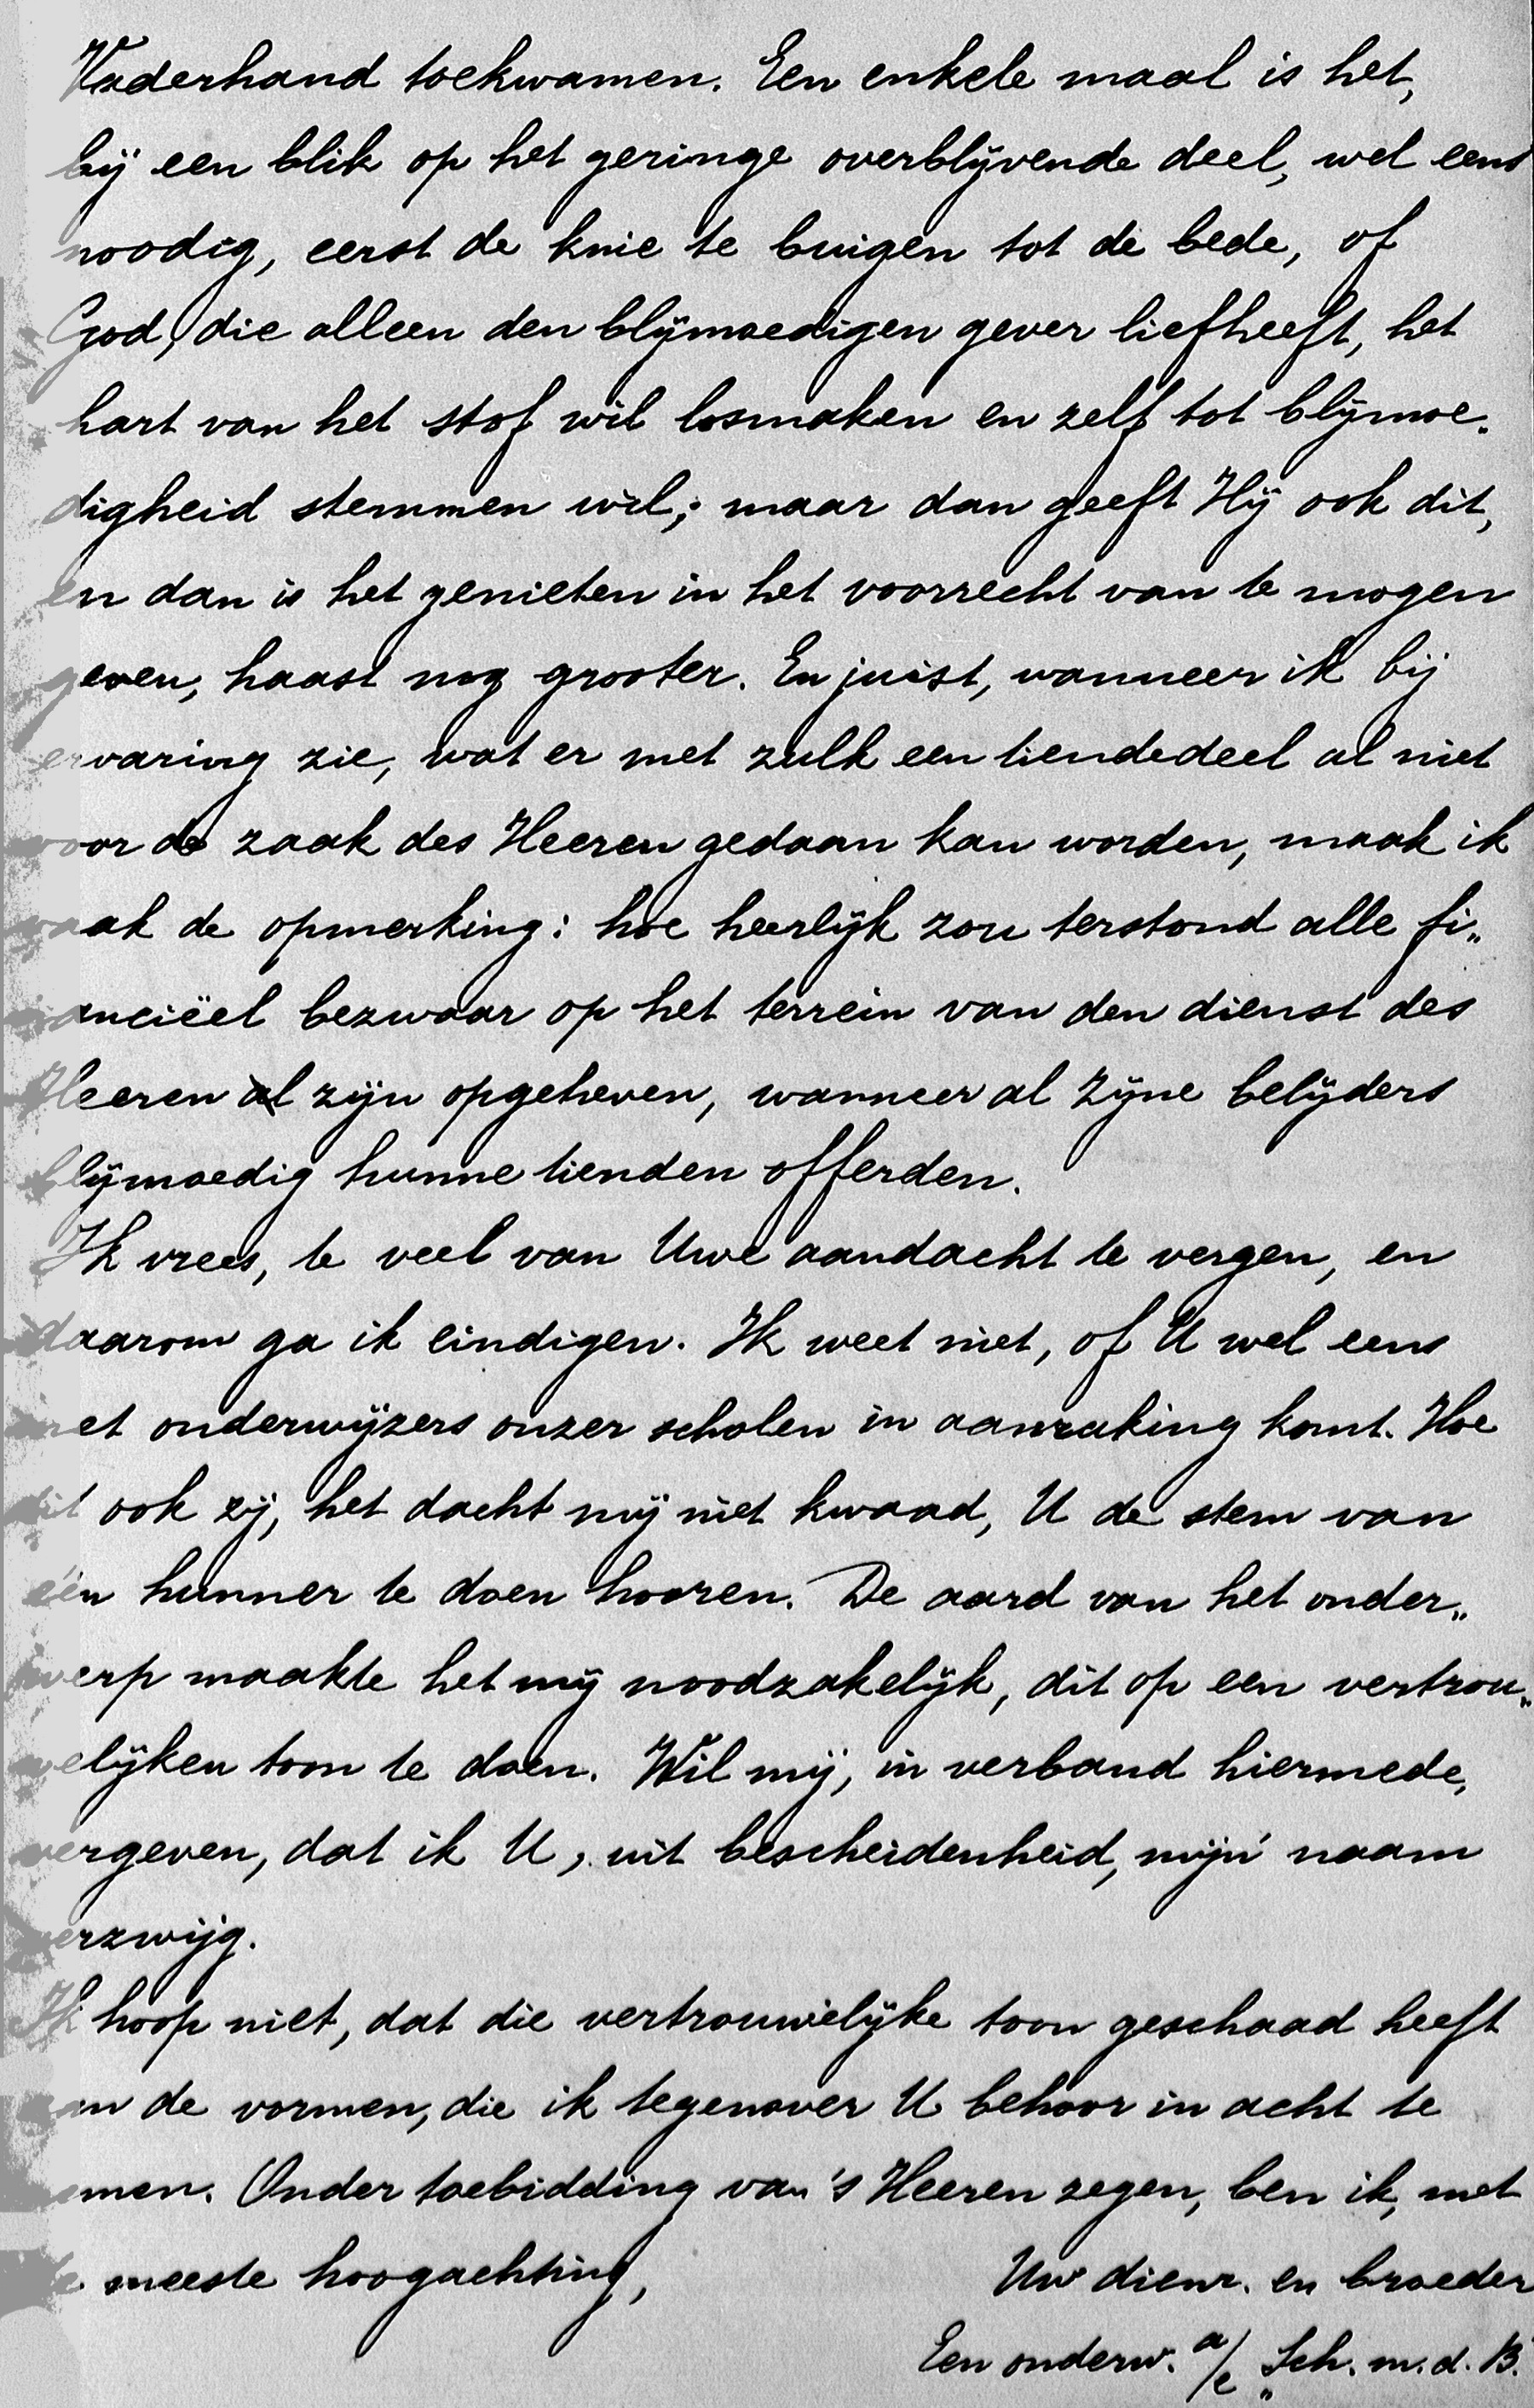 Vaderhand toekwamen. Een enkele maal is het,
bij een blik op het geringe overblijvende deel, wel eens
noodig, eerst de knie te buigen tot de bede, of
God, die alleen den blijmoedigen gever liefheeft, het
hart van het stof wil losmaken en zelf tot blijmoe„
digheid stemmen wil; maar dan geeft Hij ook dit,
en dan is het genieten in het voorrecht van te mogen
geven, haast nog grooter. En juist, wanneer ik bij
ervaring zie, wat er met zulk een tiendedeel al niet
voor de zaak des Heeren gedaan kan worden, maak ik
vaak de opmerking: hoe heerlijk zou terstond alle fi„
nanciëel bezwaar op het terrein van den dienst des
Heeren al zijn opgeheven, wanneer al Zijne belijders
blijmoedig hunne tienden offerden.
Ik vrees, te veel van Uwe aandacht te vergen, en
daarom ga ik eindigen. Ik weet niet, of U wel eens
met onderwijzers onzer scholen in aanraking komt. Hoe
dit ook zij, het dacht mij niet kwaad, U de stem van
één hunner te doen hooren. De aard van het onder„
werp maakte het mij noodzakelijk, dit op een vertrou„
welijken toon te doen. Wil mij, in verband hiermede,
vergeven, dat ik U, uit bescheidenheid, mijn naam
verzwijg.
Ik hoop niet, dat die vertrouwelijke toon geschaad heeft
aan de vormen, die ik tegenover U behoor in acht te
nemen. Onder toebidding van 's Heeren zegen, ben ik, met
de meeste hoogachting,
Uw dienr. en broeder
Een onderw. a/e „Sch. m. d. B."